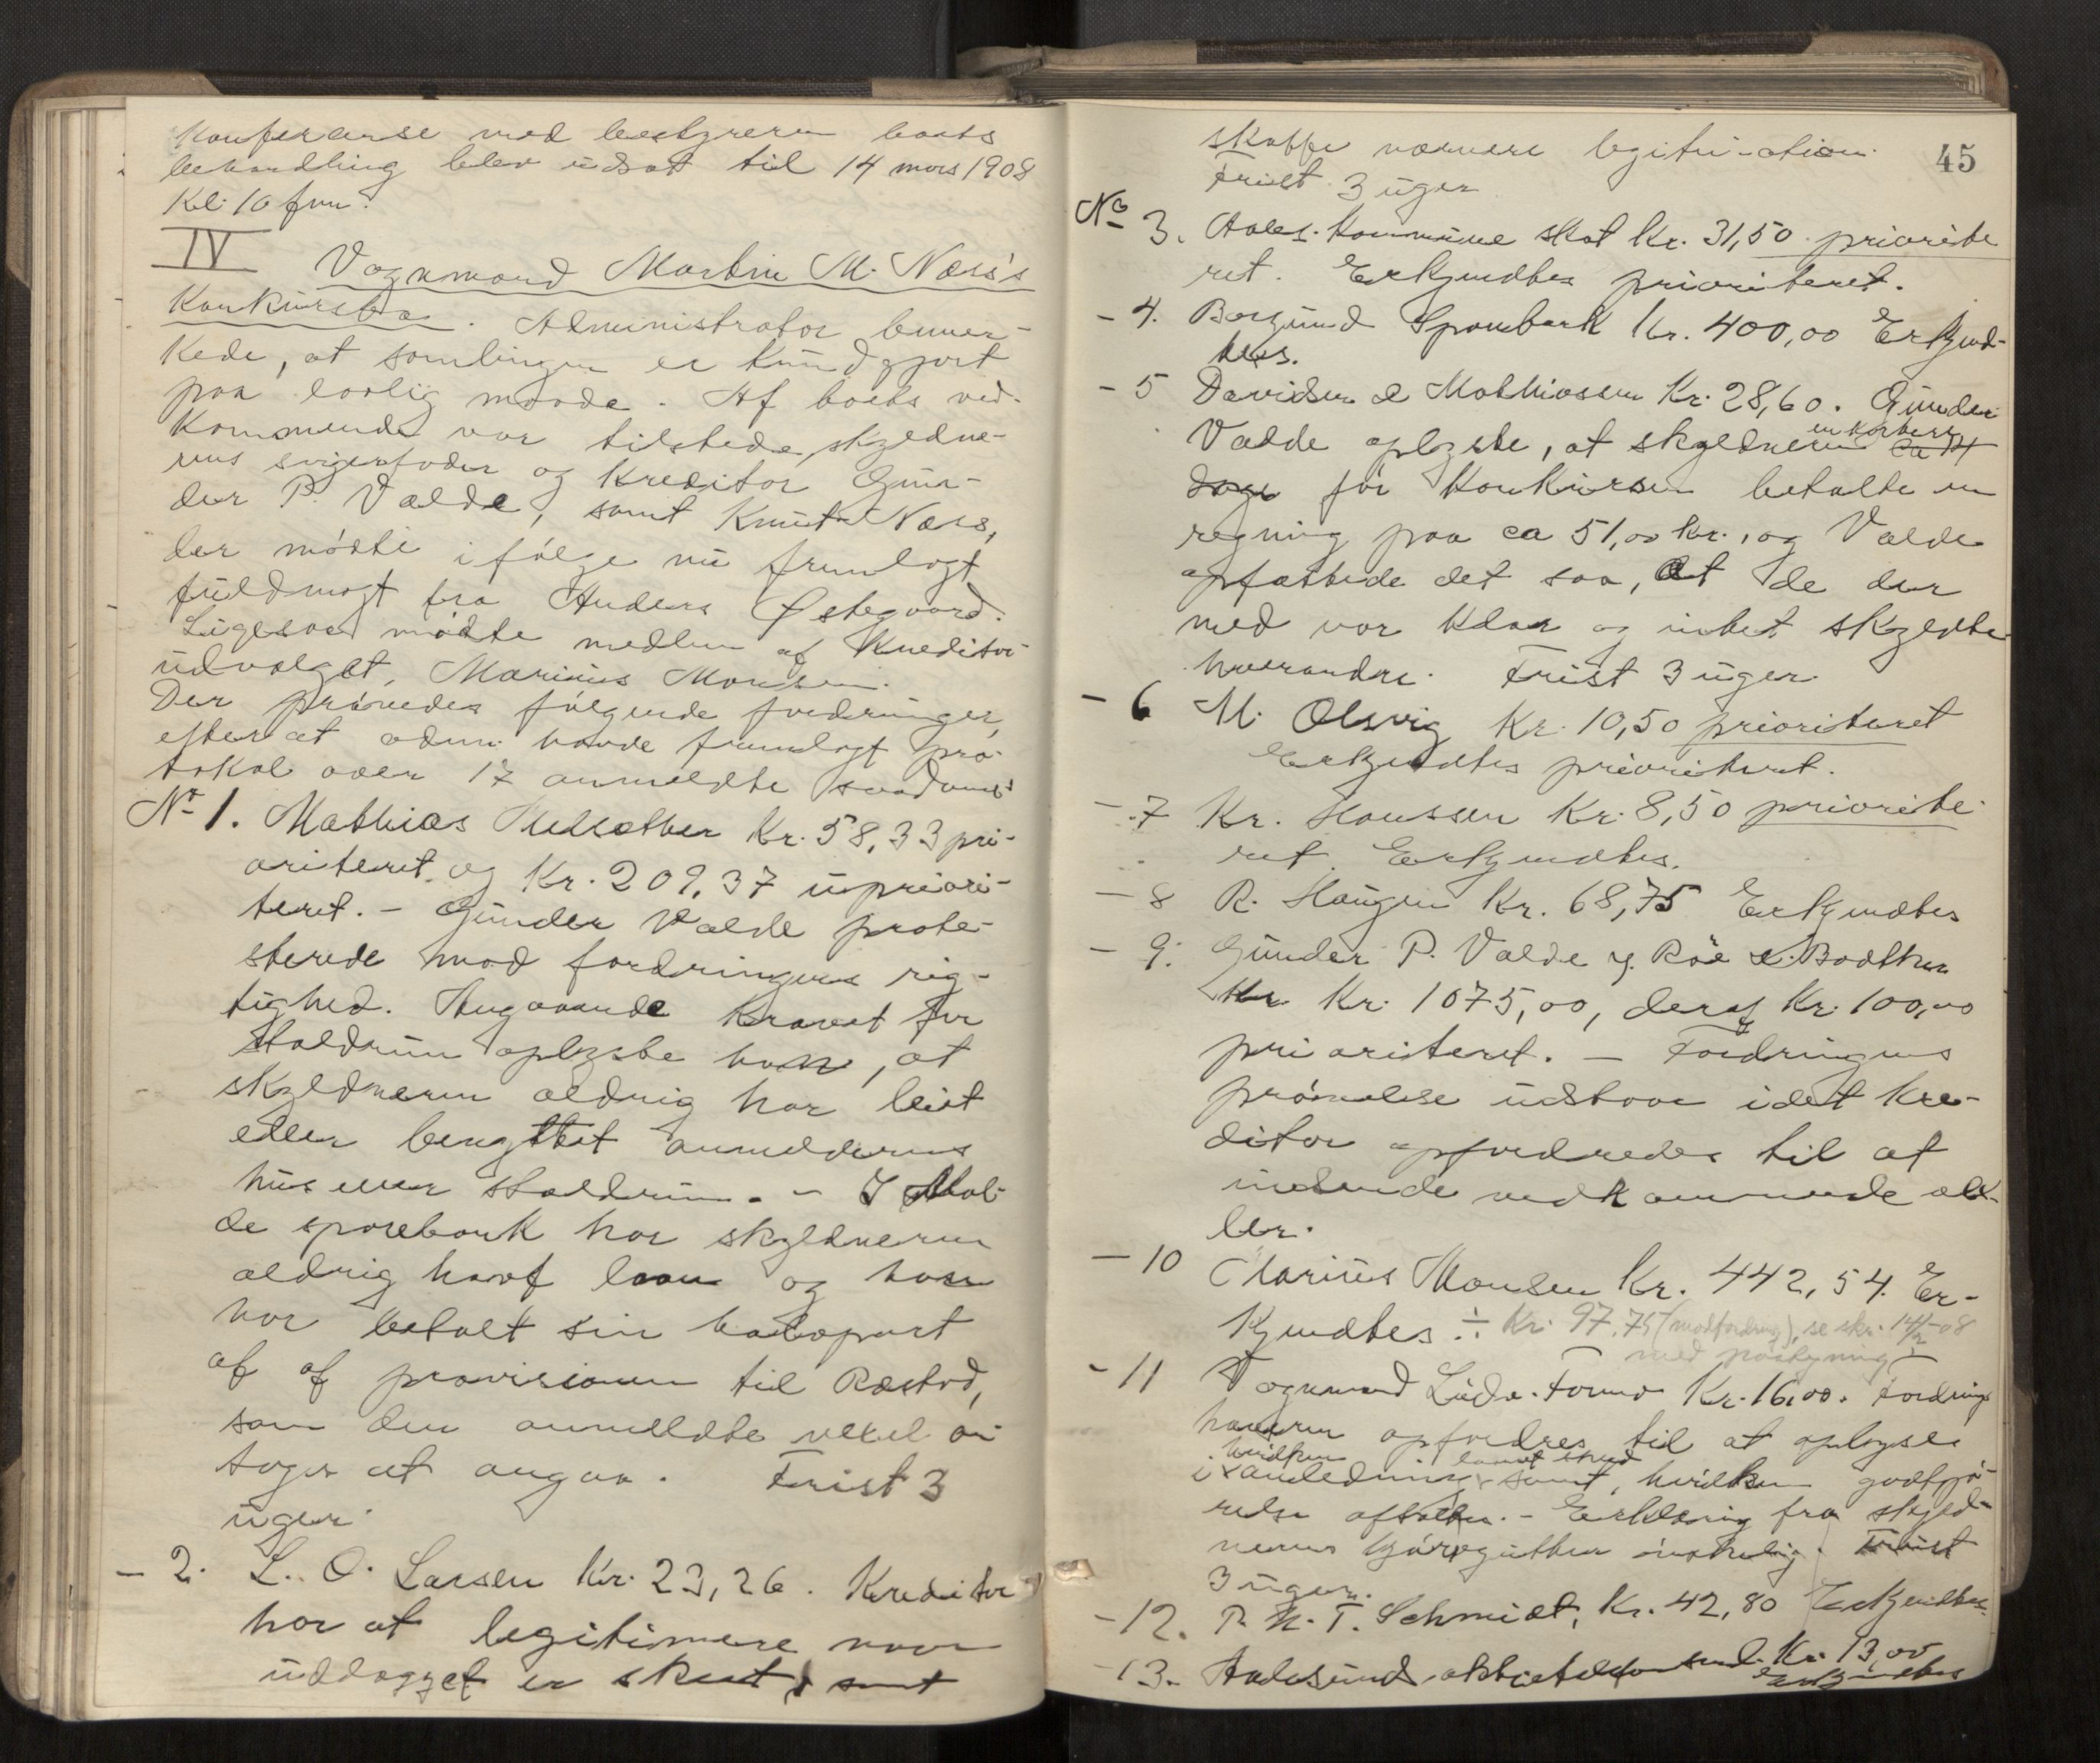 Konferanse med bestyreren boets
behandling blev udsat til 14 mars 1908
Kl. 10 fm.
IV
Vognmand Martin M. Næss's
Konkursbo. Administrator bemer-
kede, at samlingen er kundgjort
paa lovlig maade. Af boets ved-
kommende var tilstede skyldne-
rens svigerfader og kreditor Gun-
der P. Valde, samt Knut Næss,
der mødte ifølge nu fremlagt
fuldmagt fra Anders Østegaard.
Ligesaa mødte medlem af Kreditor-
udvalget, Marius Monsen.
Der prøvedes følgende fordringer,
efter at adm. havde fremlagt pro-
tokol over 17 anmeldte
No 1. Mathias Helsæther Kr. 58,33 pri-
oriteret og Kr. 209,37 upriori-
teret. – Gunder Valde prote-
sterede mod fordringens rig-
tighed. Angaaende kravet for
Staldrum oplyste han, at
skyldneren aldrig har leiet
eller benyttet anmelderens
hus eller staldrum. – I Mol-
de sparebank har skyldneren
aldrig havt laan og han
har betalt sin halvpart
af af provisionen til Ræstad,
som den anmeldte vexel an-
tages at angaa. Frist 3
uger.
– 2. L. O. Larsen Kr. 23,26. Kreditor
har at legitimere naar
udlægget er skeet, samt
45
skaffe nærmere legitimation.
Frist 3 uger
No 3. Aales. Kommune skat Kr. 31,50 priorite
ret. Erkjendtes prioriteret.
– 4. Borgund Sparebank Kr. 400,00 Erkjend-
tes.
– 5 Davidsen & Mathiassen Kr. 28,60. Gunder
Valde oplyste, at skyldneren en kortere ca 14
dage før Konkursen betalte en
regning paa ca 51,00 kr., og Valde
opfattede det saa, at de der
med var klar og intet skyldte
hverandre. Frist 3 uger.
– 6 M. Olsvig Kr. 10,50 prioriteret
Erkjendtes prioriteret.
– 7 Kr. Hanssen Kr. 8,50 priorite-
ret. Erkjendtes.
– 8 R. Haugen Kr. 68,75 Erkjendtes
– 9. Gunder P. Valde
Kr. Kr. 1075,00, deraf Kr. 100,00
prioriteret. – Fordringens
prøvelse udstaar idet kre-
ditor opfordredes til at
indsende vedkommende vex-
ler.
– 10 Marius Monsen Kr. 442,54. Er-
kjendtes ÷ Kr. 97,75 (modfordring), se skr. 14/2-08
med paategning
– 11 Vognmand Kr. 16,00. Fordrings
haveren opfordres til at oplyse
i hvilken anledning laanet skeed samt, hvilken godtgjø-
relse aftaltes. – Erklæring fra skyld-
nerens kjøregutter ønskelig. Frist
3 uger.
– 12. P. N. T. Schmidt, Kr. 42,80 Erkjendtes.
– 13. Aalesunds aktietelefonsels. Kr. 13,00
Erkjendtes